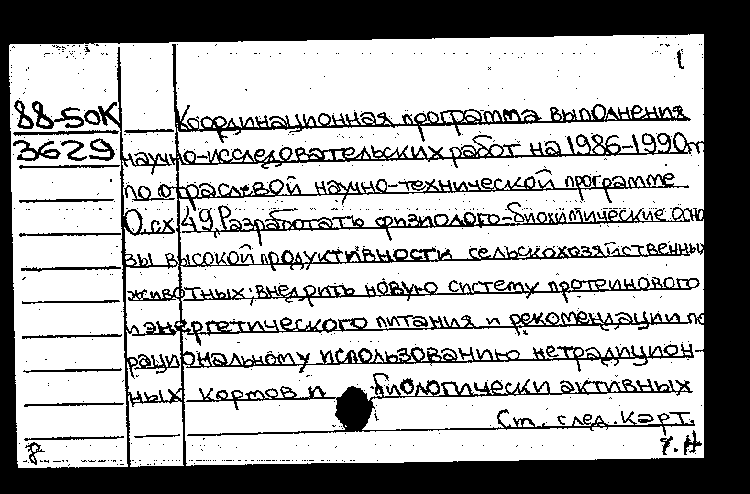 1
88-50К Координационная программа выполнения
3629 научно-исследовательских работ на 1986-1990гг
по отраслевой научно-технической программе
О.сх.49. "Разработать физиолого-биохимические осно
вы высокой продуктивности сельскохозяйственных
животных; внедрить новую систему протеинового
и энергетического питания и рекомендации по
рациональному использованию нетрадицион-
ных кормов и биологически активных
Ст. след. карт.